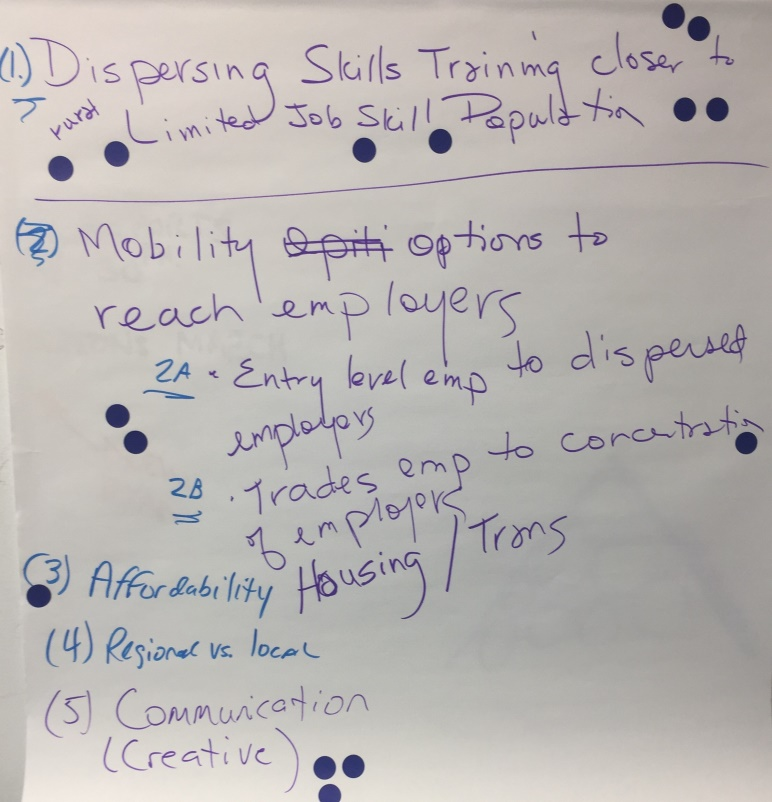 (1.) Dispersing Skills Training closer to
rural Limited Job Skill Population
(2) Mobility Opiti options to
reach employers
2A • Entry level emp to dispersed
employers
2B • Trades emp to concentration
of employers
(3) Affordability Housing / Trans
(4) Regional vs. local
(5) Communication
(Creative)